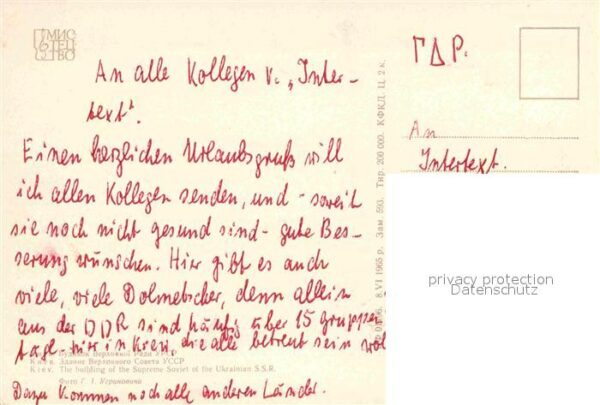 МИС
ТЕЦ
ТВО
ГДР.
An alle Kollegen v. „Inter-
text".
An
Intertext.
Einen herzlichen Urlaubsgruß will
ich allen Kollegen senden, und - soweit
sie noch nicht gesund sind - gute Bes-
serung wünschen. Hier gibt es auch
viele, viele Dolmetscher, denn allein
aus der DDR sind häufig über 15 Gruppen
tägl. hier in Kiew, die alle betreut sein woll
Будинок Верховної Ради УРСР
Киев. Здание Верховного Совета УССР
Kiev. The building of the Supreme Soviet of the Ukrainian S.S.R.
Фото Г. І. Угриновича
Dazu kommen noch alle anderen Länder.
8.VI 1965 р. Зам. 593. Тир. 200 000. КФКД. Ц. 2 к.
privacy protection
Datenschutz